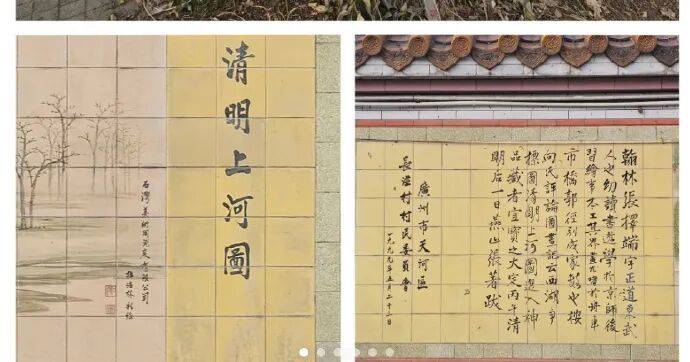 清明上河圖
石灣美術陶瓷
有限公司
翰林張擇端字正道東武
人也幼讀書遊學於京師後
習繪事本工其界畫尤嗜於舟車
市橋郭徑別成家數也按
向氏評論圖畫記云西湖爭
標圖清明上河圖選入神
品藏者宜寶之大定丙午清
明后一日燕山張著跋
廣州市天河區
長湴村村民委員會
一九九九年五月二十二日